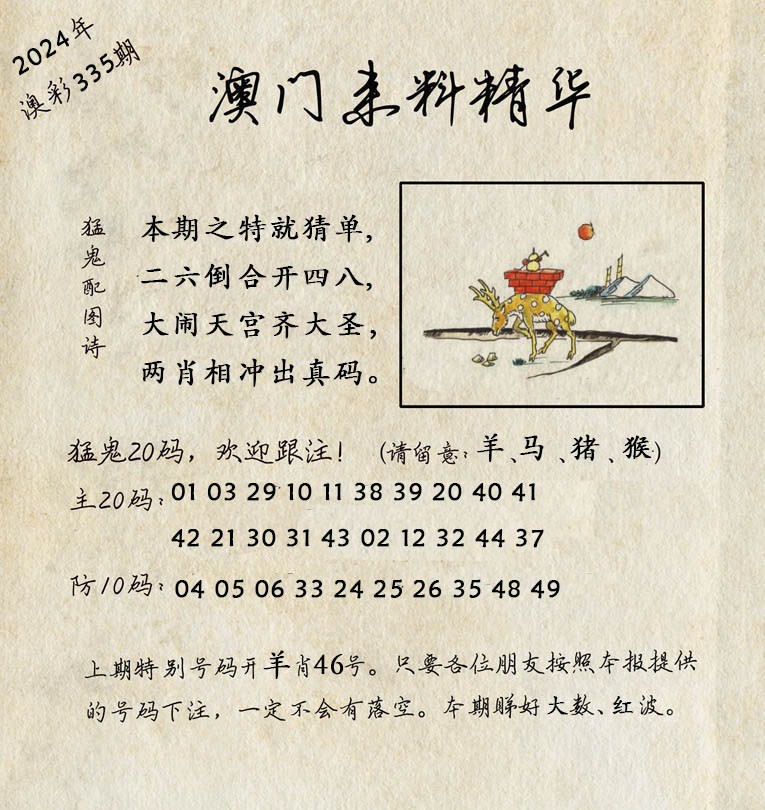 2024年
澳彩335期
澳门来料精华
猛鬼配图诗
本期之特就猜单，
二六倒合开四八，
大闹天宫齐大圣，
两肖相冲出真码。
猛鬼20码，欢迎跟注！（请留意：羊、马、猪、猴）
主20码：01 03 29 10 11 38 39 20 40 41
42 21 30 31 43 02 12 32 44 37
防10码：04 05 06 33 24 25 26 35 48 49
上期特别号码开羊肖46号。只要各位朋友按照本报提供
的号码下注，一定不会有落空。本期睇好大数、红波。